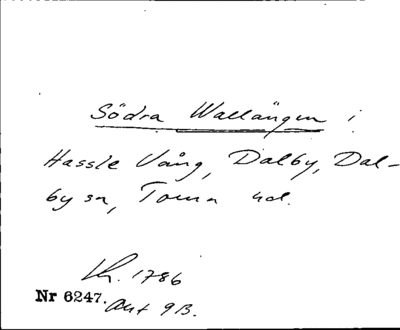 Södra Wallängen i
Hassle Vång, Dalby, Dal-
by sn, Torna hd.
Lh. 1786
Nr 6247. Akt 9B.